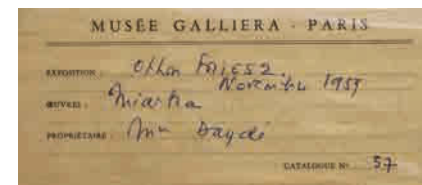 MUSÉE GALLIERA - PARIS
EXPOSITION : Othon Friesz.
Novembre 1959
ŒUVRES :
PROPRIÉTAIRE : Mme Daydé
CATALOGUE No 57